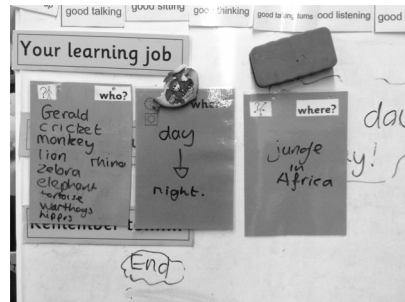 good talking
good sitting
good thinking
good taking turns
ood listening
good
Your learning job
who?
Gerald
cricket
monkey
lion rhino
zebra
elephant
tortoise
warthogs
hippos
whe
day
night.
where?
jungle
in
Africa
day
y!
Remember t
End